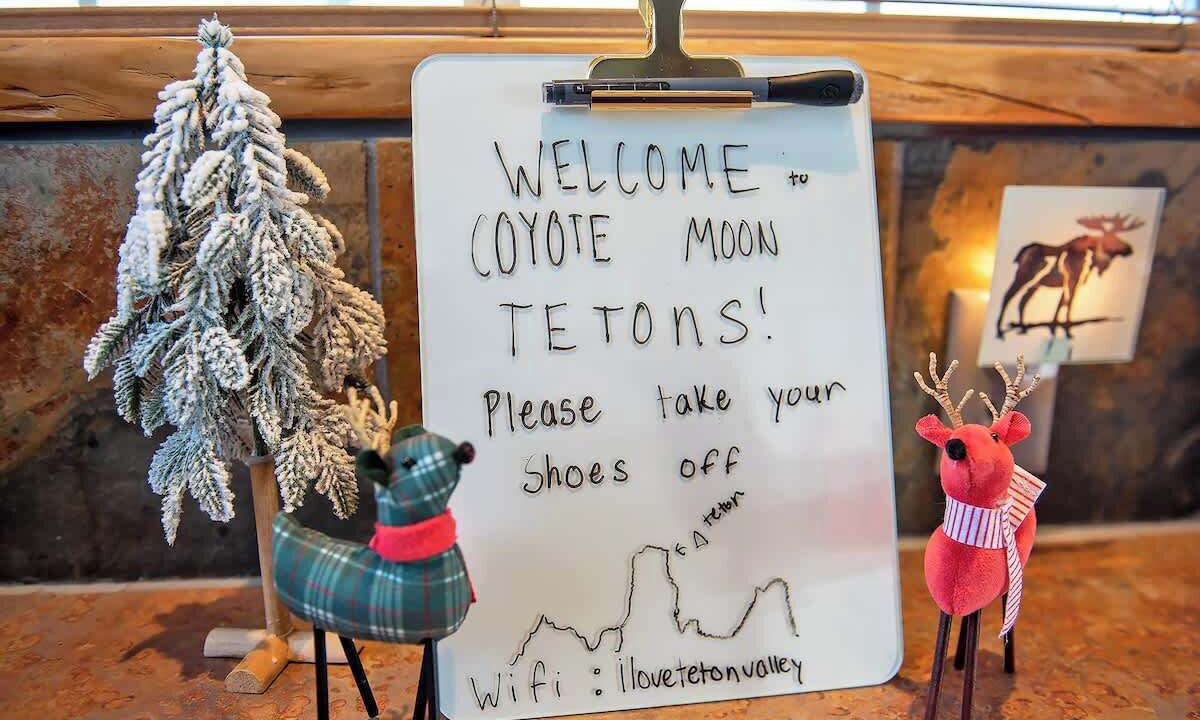 WELCOME to
COYOTE MOON
TETONS!
Please take your
Shoes off
← Δ teton
Wifi : ilovetetonvalley